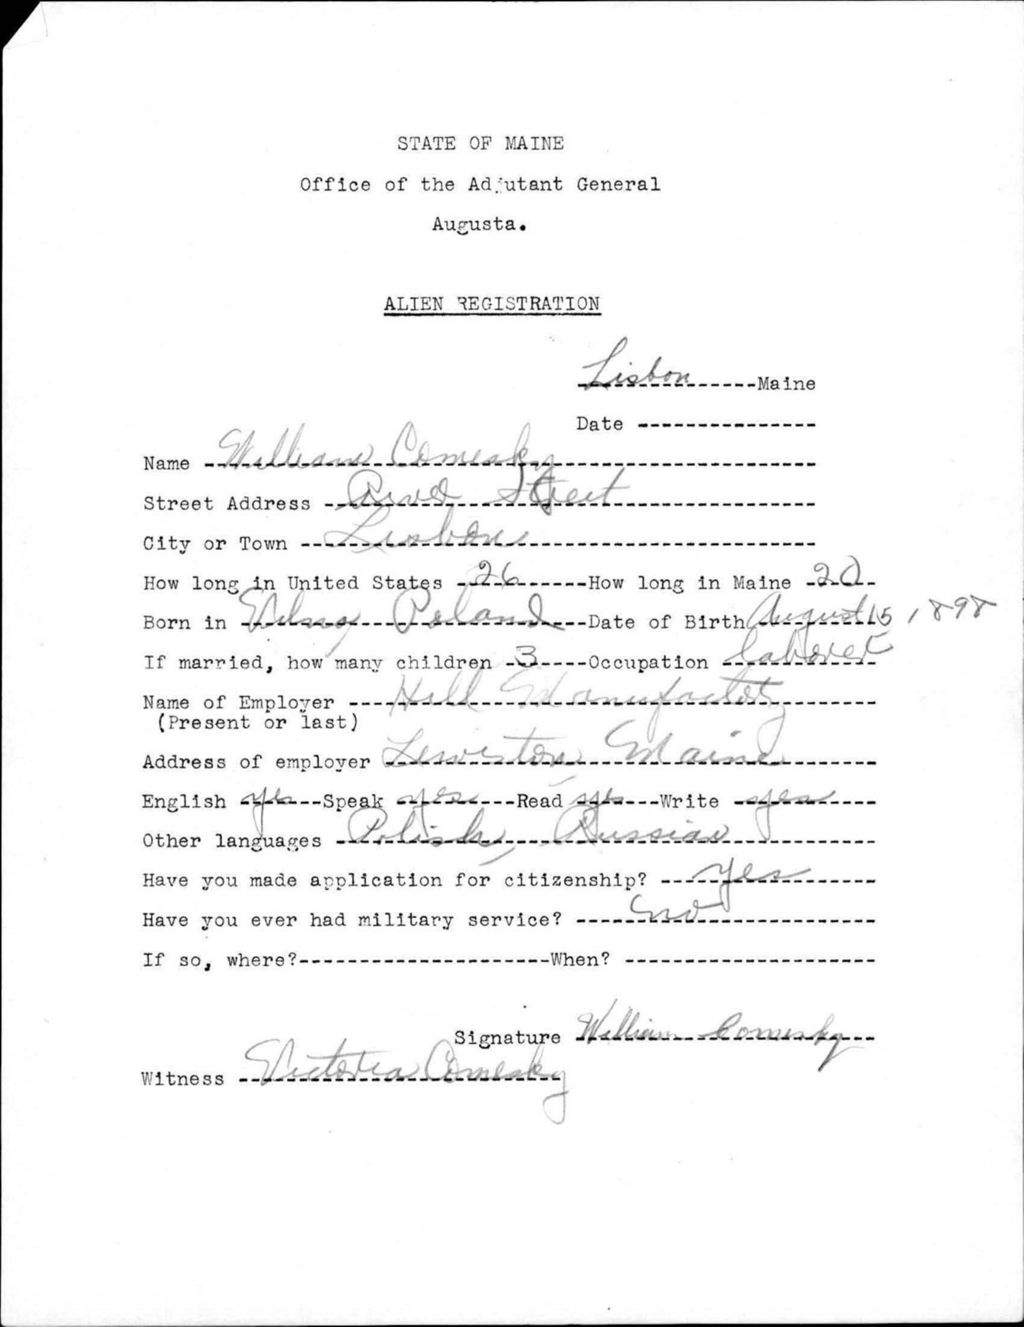 STATE OF MAINE
Office of the Adjutant General
Augusta.
ALIEN REGISTRATION
Lisbon Maine
Date
Name William Comesky
Street Address Street
City or Town Lisbon
How long in United States 26 How long in Maine 20
Born in Vilna, Poland Date of Birth August 15, 1898
If married, how many children 3 Occupation laborer
Name of Employer Hill Manufactory
(Present or last)
Address of employer Lewiston, Maine
English yes Speak yes Read yes Write yes
Other languages Polish, Russian
Have you made application for citizenship? Yes
Have you ever had military service? no
If so, where? When?
Signature William Comesky
Witness Victoria Comesky